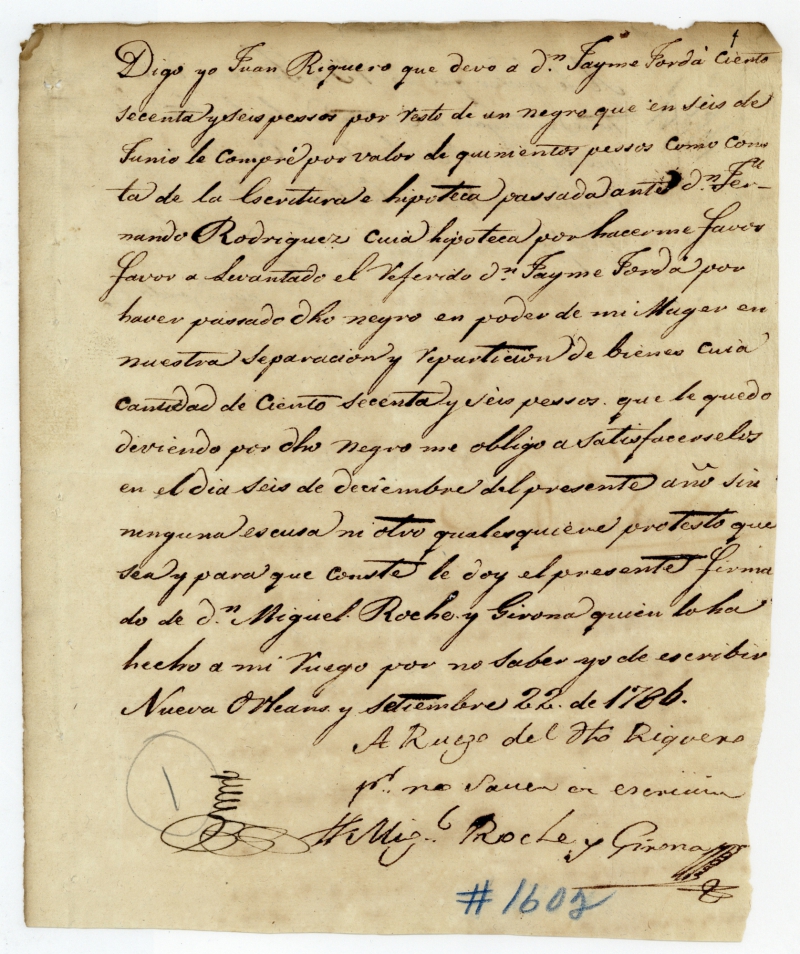 Digo yo Juan Riquero que devo a d.n Jayme Jordá Ciento
secenta y seis pessos por resto de un negro que en seis de
Junio le compré por valor de quinientos pessos como cons
ta de la Escritura e hipoteca passada ante d.n Fer-
nando Rodriguez cuia hipoteca por hacerme favor
favor a levantado el referido d.n Jayme Jordá por
haver passado dho negro en poder de mi Muger en
nuestra separacion y reparticion de bienes cuia
cantidad de Ciento secenta y seis pessos. que le quedo
deviendo por dho negro me obligo a satisfacerselos
en el dia seis de deciembre del presente año sin
ninguna escusa ni otro qualesquiere protesto que
sea y para que conste le doy el presente firma
do de d.n Miguel Roche y Girona quien lo ha
hecho a mi ruego por no saber yo de escribir
Nueva Orleans y setiembre 22. de 1786.
A Ruego del dto Riquero
pr. no saver
Mig.l Roche y Girona
1
# 1602